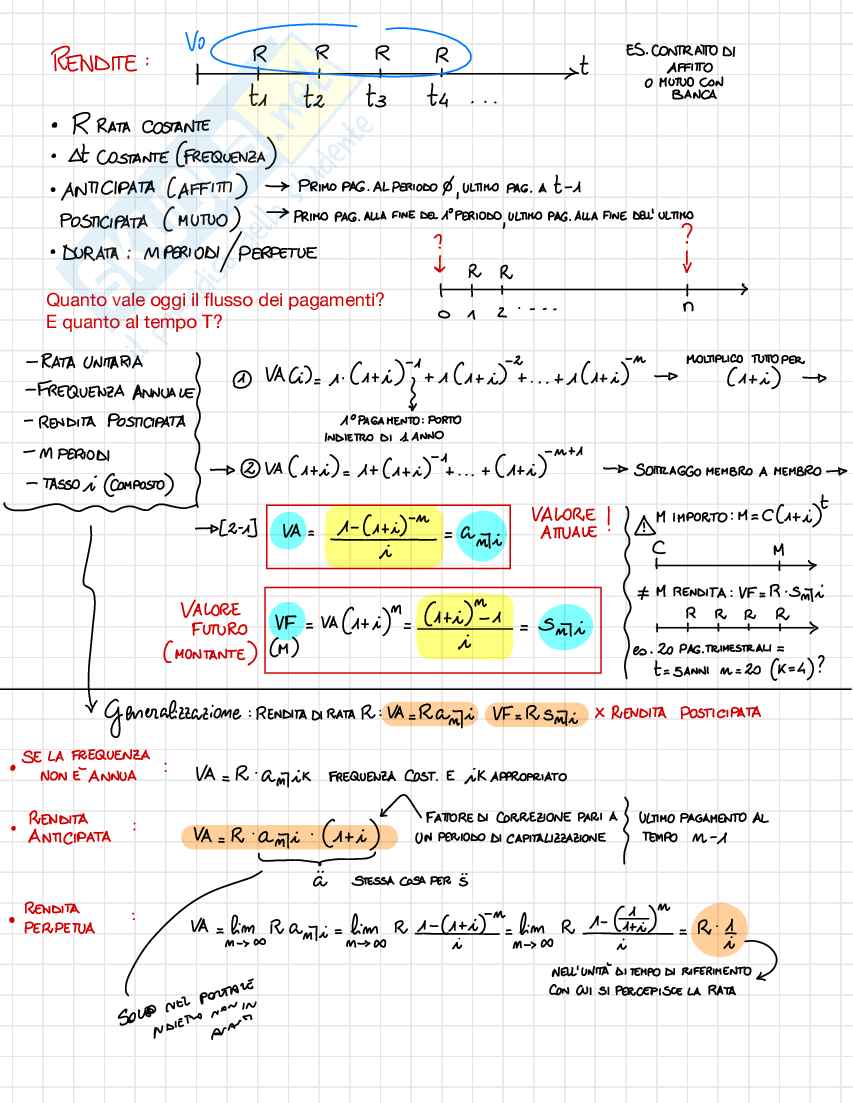 RENDITE :
V0 R R R R
t1 t2 t3 t4 ... t
ES. CONTRATTO DI
AFFITTO
O MUTUO CON
BANCA
• R RATA COSTANTE
• Δt COSTANTE (FREQUENZA)
• ANTICIPATA (AFFITTI) → PRIMO PAG. AL PERIODO Ø, ULTIMO PAG. A t-1
POSTICIPATA (MUTUO) → PRIMO PAG. ALLA FINE DEL 1° PERIODO, ULTIMO PAG. ALLA FINE DELL'ULTIMO
• DURATA : m PERIODI / PERPETUE
? ?
R R
0 1 2 .... n
Quanto vale oggi il flusso dei pagamenti?
E quanto al tempo T?
- RATA UNITARIA
- FREQUENZA ANNUALE
- RENDITA POSTICIPATA
- m PERIODI
- TASSO i (COMPOSTO)
① VA(i) = 1·(1+i)^-1 + 1(1+i)^-2 + ... + 1(1+i)^-m → MOLTIPLICO TUTTO PER (1+i) →
1° PAGAMENTO: PORTO
INDIETRO DI 1 ANNO
→ ② VA(1+i) = 1+(1+i)^-1 + ... + (1+i)^-m+1 → SOTTRAGGO MEMBRO A MEMBRO →
→ [2-1] VA = 1-(1+i)^-m / i = a m¬i
VALORE
ATTUALE !
VALORE
FUTURO
(MONTANTE)
VF (M) = VA(1+i)^m = (1+i)^m - 1 / i = s m¬i
⚠ M IMPORTO: M = C(1+i)^t
C M
≠ M RENDITA : VF = R · s m¬i
R R R R
es. 20 PAG. TRIMESTRALI =
t = 5 ANNI m = 20 (K=4)?
Generalizzazione : RENDITA DI RATA R: VA = R a m¬i VF = R s m¬i × RIENDITA POSTICIPATA
• SE LA FREQUENZA
NON È ANNUA :
VA = R · a m¬iK FREQUENZA COST. E iK APPROPRIATO
• RENDITA
ANTICIPATA :
VA = R · a m¬i · (1+i)
FATTORE DI CORREZIONE PARI A
UN PERIODO DI CAPITALIZZAZIONE
ULTIMO PAGAMENTO AL
TEMPO m-1
ä STESSA COSA PER s̈
• RENDITA
PERPETUA :
VA = lim m→∞ R a m¬i = lim m→∞ R 1-(1+i)^-m / i = lim m→∞ R 1-(1/1+i)^m / i = R · 1/i
NELL'UNITÀ DI TEMPO DI RIFERIMENTO
CON CUI SI PERCEPISCE LA RATA
SOLO NEL PORTARE
INDIETRO NON IN
AVANTI